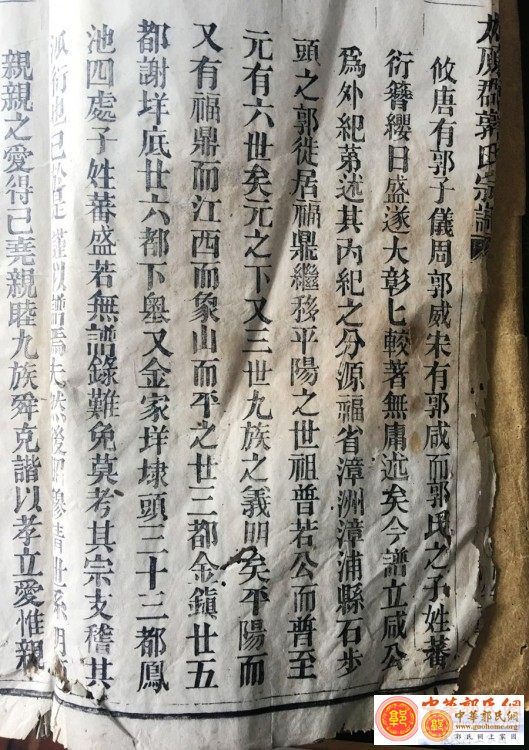 太原郡郭氏宗譜
攸唐有郭子儀周郭威宋有郭咸而郭氏之子姓蕃
衍簪纓日盛遂大彰匕較著無庸述矣今譜立咸公
爲外紀苐述其內紀之分源福省漳洲漳浦縣石步
頭之郭徙居福鼎繼移平陽之世祖普若公而普至
元有六世矣元之下又三世九族之義明矣平陽而
又有福鼎而江西而象山而平之廿三都金鎮廿五
都謝垟底廿六都下㘰又金家垟埭頭三十三都鳳
池四處子姓蕃盛若無譜錄難免莫考其宗支稽其
衍也已於是謹以譜焉夫然後昭穆清世系明
親親之愛得己堯親睦九族舜克諧以孝立愛惟親
中华郭氏網
中華郭氏網
www.guohome.org
郭氏網上家園